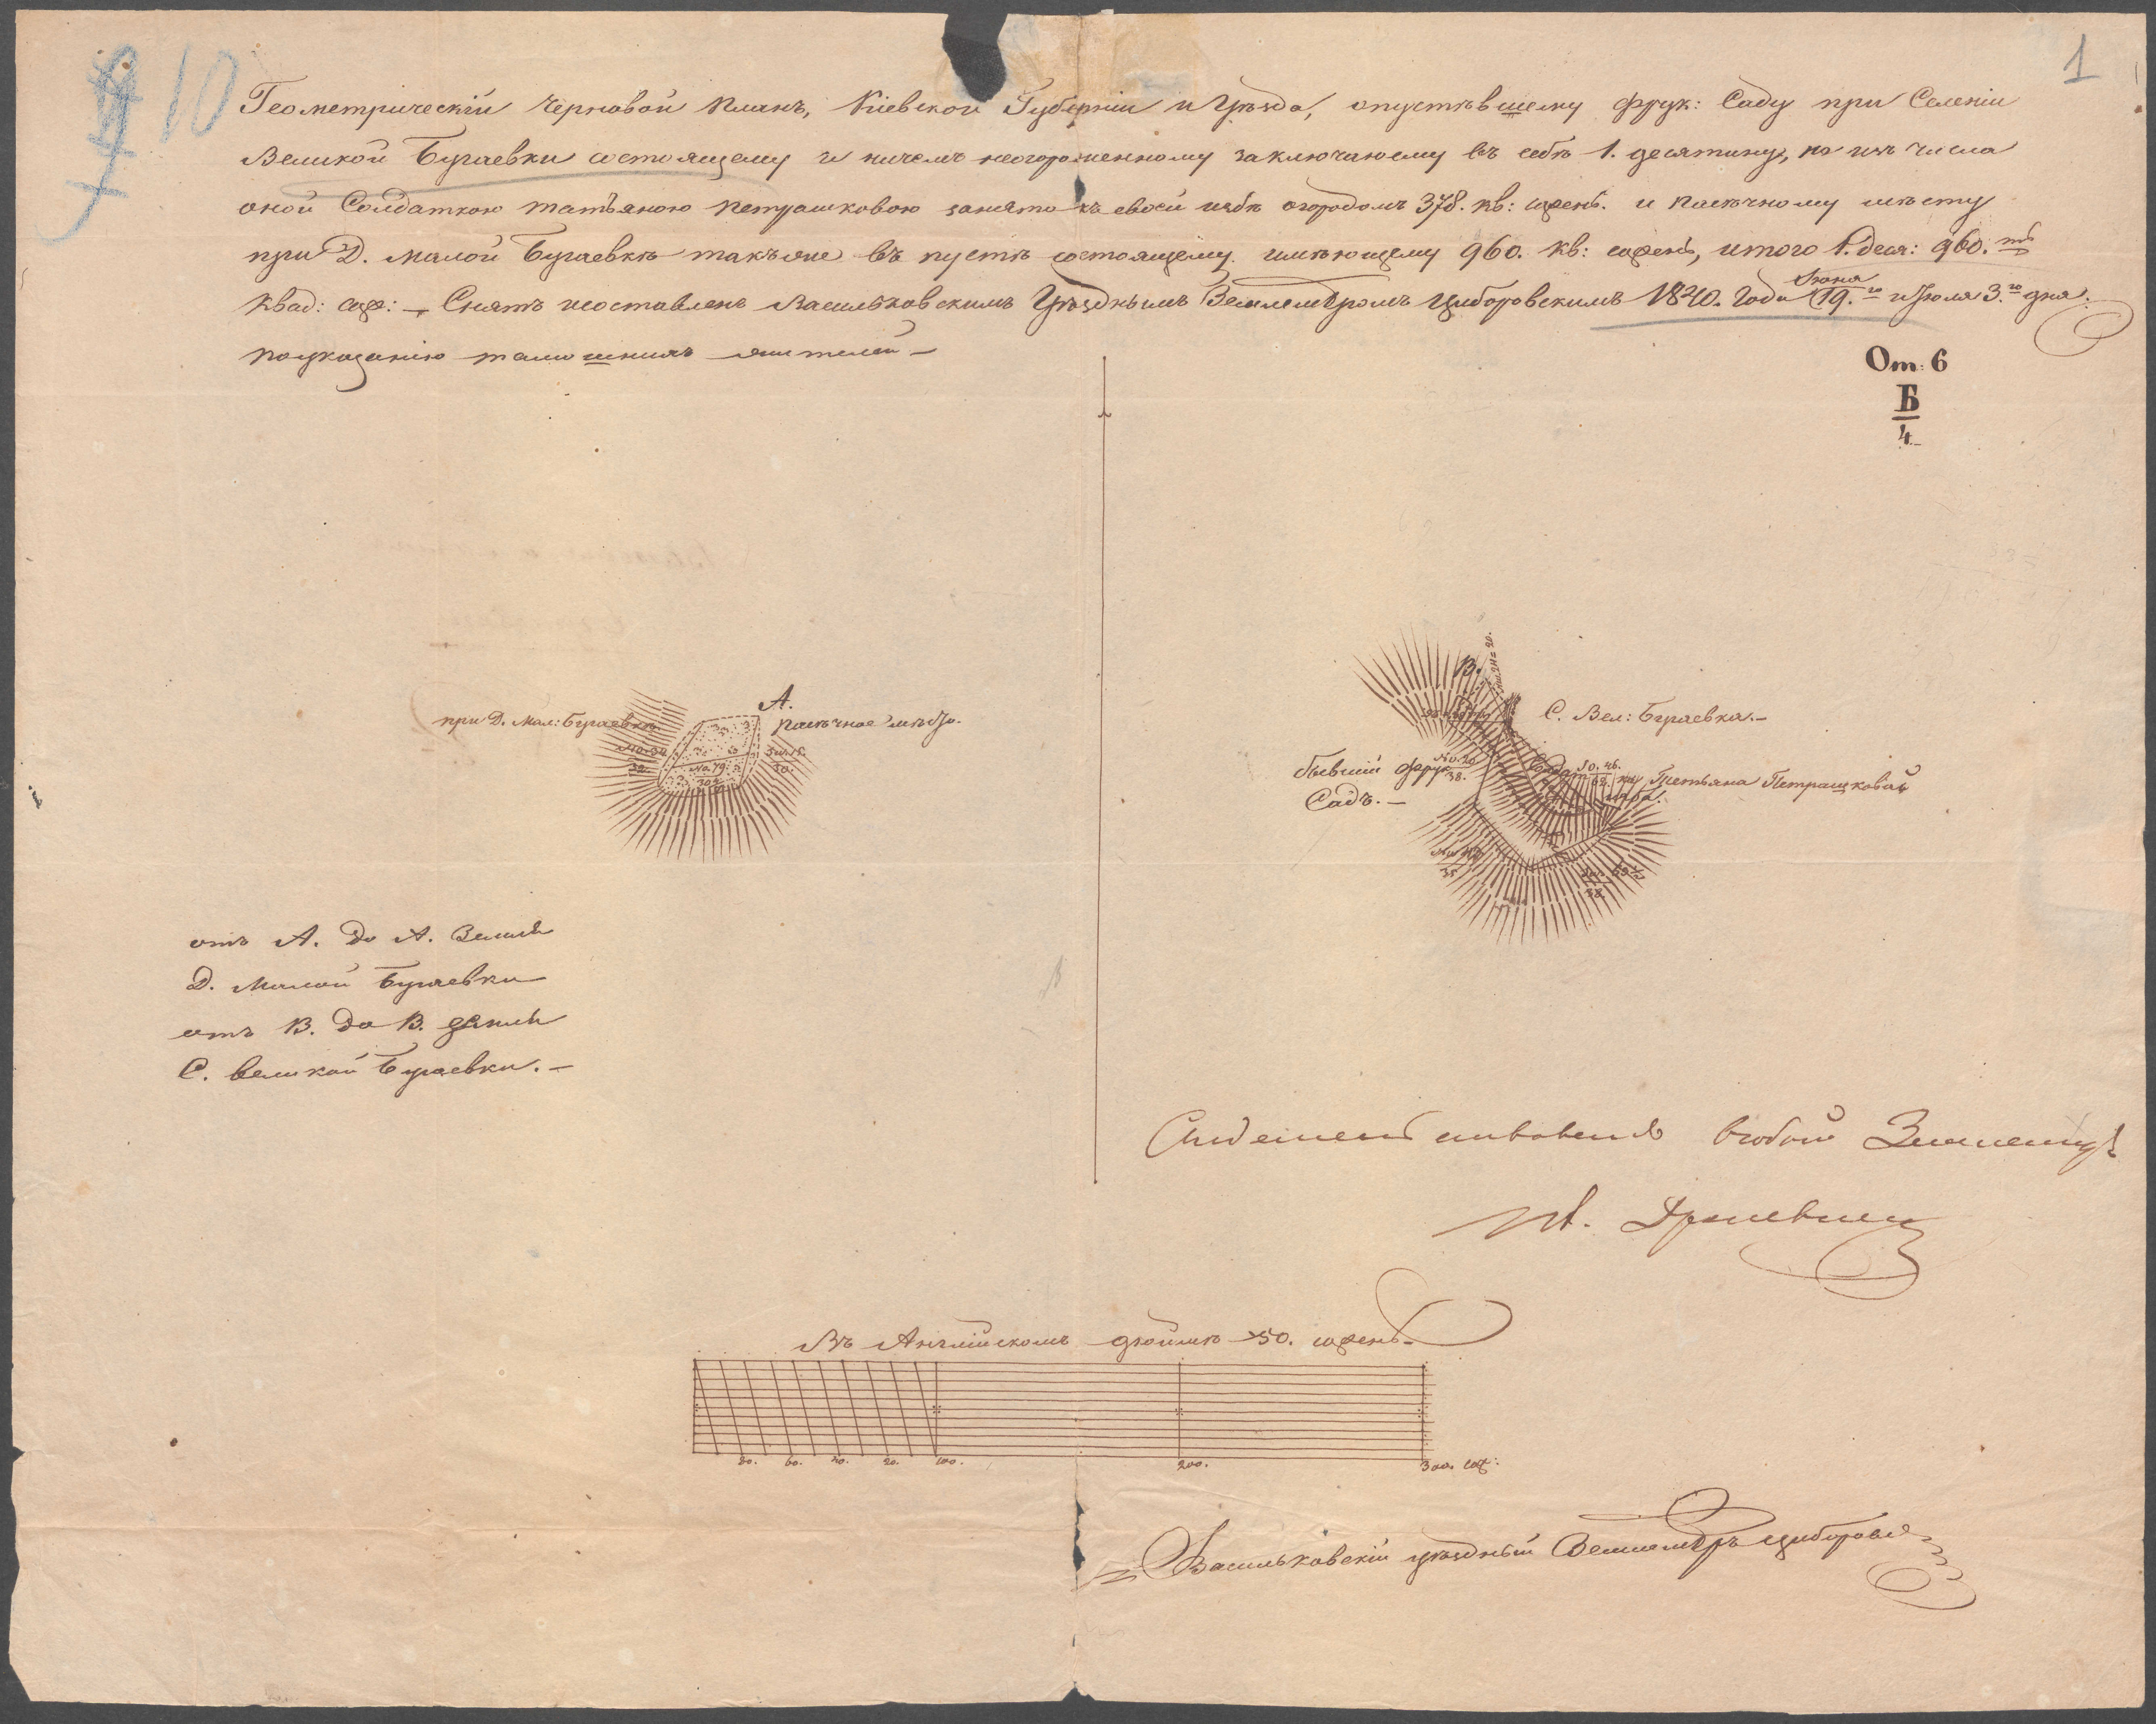 10
1
Геометрическій Черновой Планъ, Кіевской Губерніи и Уѣзда, опустѣвшему фрук: Саду при Селеніи
Великой Бугаевки состоящему и ничемъ неогороженному заключаюему въ себѣ 1. десятину, но изъ числа
оной Солдаткою татьяною петрашковою занято къ своей избѣ огородомъ 378. кв: сажень. и пасѣчному мѣсту
при Д. малой Бугаевкѣ такъже въ пустѣ состоящему имѣющему 960. кв: сажень, итого 1. деся: 960.
квад: саж: – Снятъ исоставленъ Васильковскимъ Уѣзднымъ Землемѣромъ Циборовскимъ 1840. Года Іюня 19.го и Іюля 3.го дня.
поуказанію тамошнихъ жителей –
От: 6
Б
4.
А.
при Д. Мал: Бугаевкѣ
Пасѣчное мѣсто.
В.
С. Вел: Бугаевка. –
бывшій фрук
Садъ. –
Татьяна Петрашковай
отъ А. до А. Земли
Д. Малой Бугаевки
отъ В. до В. земли
С. великой Бугаевки. –
Въ Англійскомъ дюймѣ 50. сажень.
80. 60. 40. 20. 100. 200. 300. саж:
Васильковскій уѣздный Землемѣръ Циборовскій